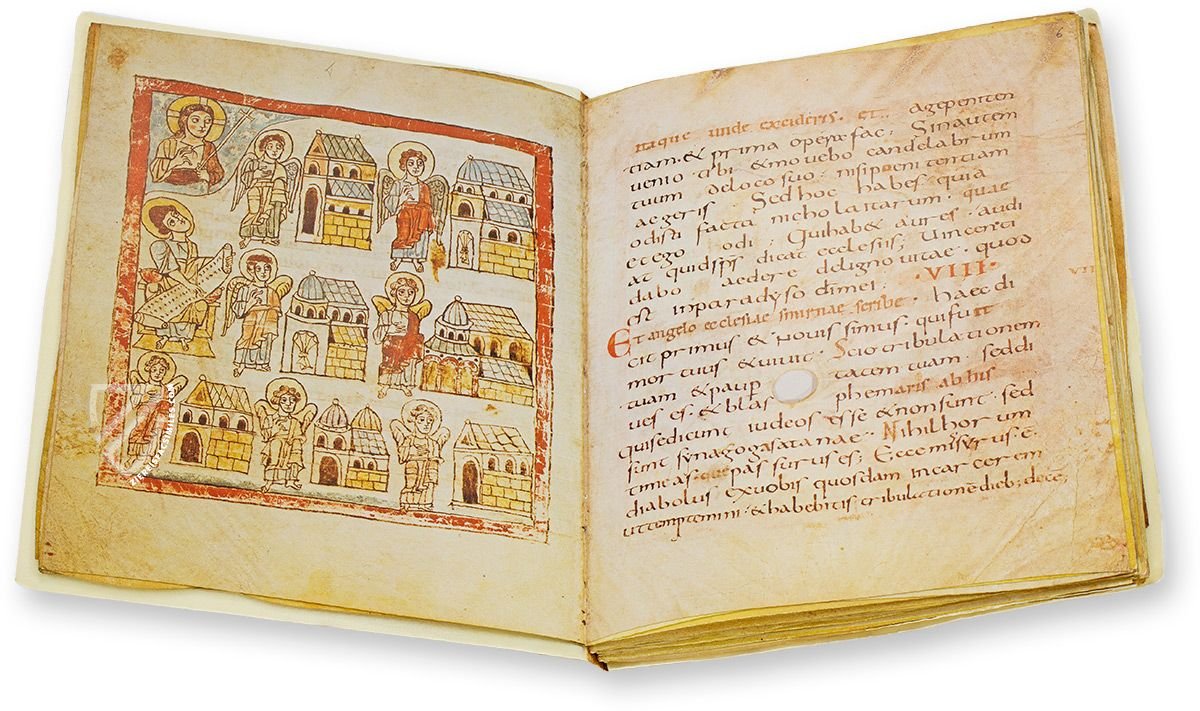 6
itaque unde excideris. et.. age peniten
tiam. & prima opera fac; Sin autem
venio tibi & movebo candelabrum
tuum de loco suo. nisi penitentiam
aegeris. Sed hoc habes quia
odisti facta nicholaitarum. quae
et ego odi; Qui hab& aures. audi
at quid sps dicat ecclesiis; Vincenti
dabo aedere de ligno vitae. quod
est in paradyso di mei. ·VIII·
VIII
Et angelo ecclesiae smirnae scribe. haec di
cit primus & novissimus. qui fuit
mortuus & vivit. Scio tribulationem
tuam & paup tatem tuam. sed di
ves es. & blas phemaris ab his
qui se dicunt iudeos esse & non sunt. sed
sunt synagoga satanae. Nihil horum
timeas que passurus es; Ecce misurus ē
diabolus ex vobis quosdam in carcerem
ut temptemini. & habebitis tribulationē dieb; decē;